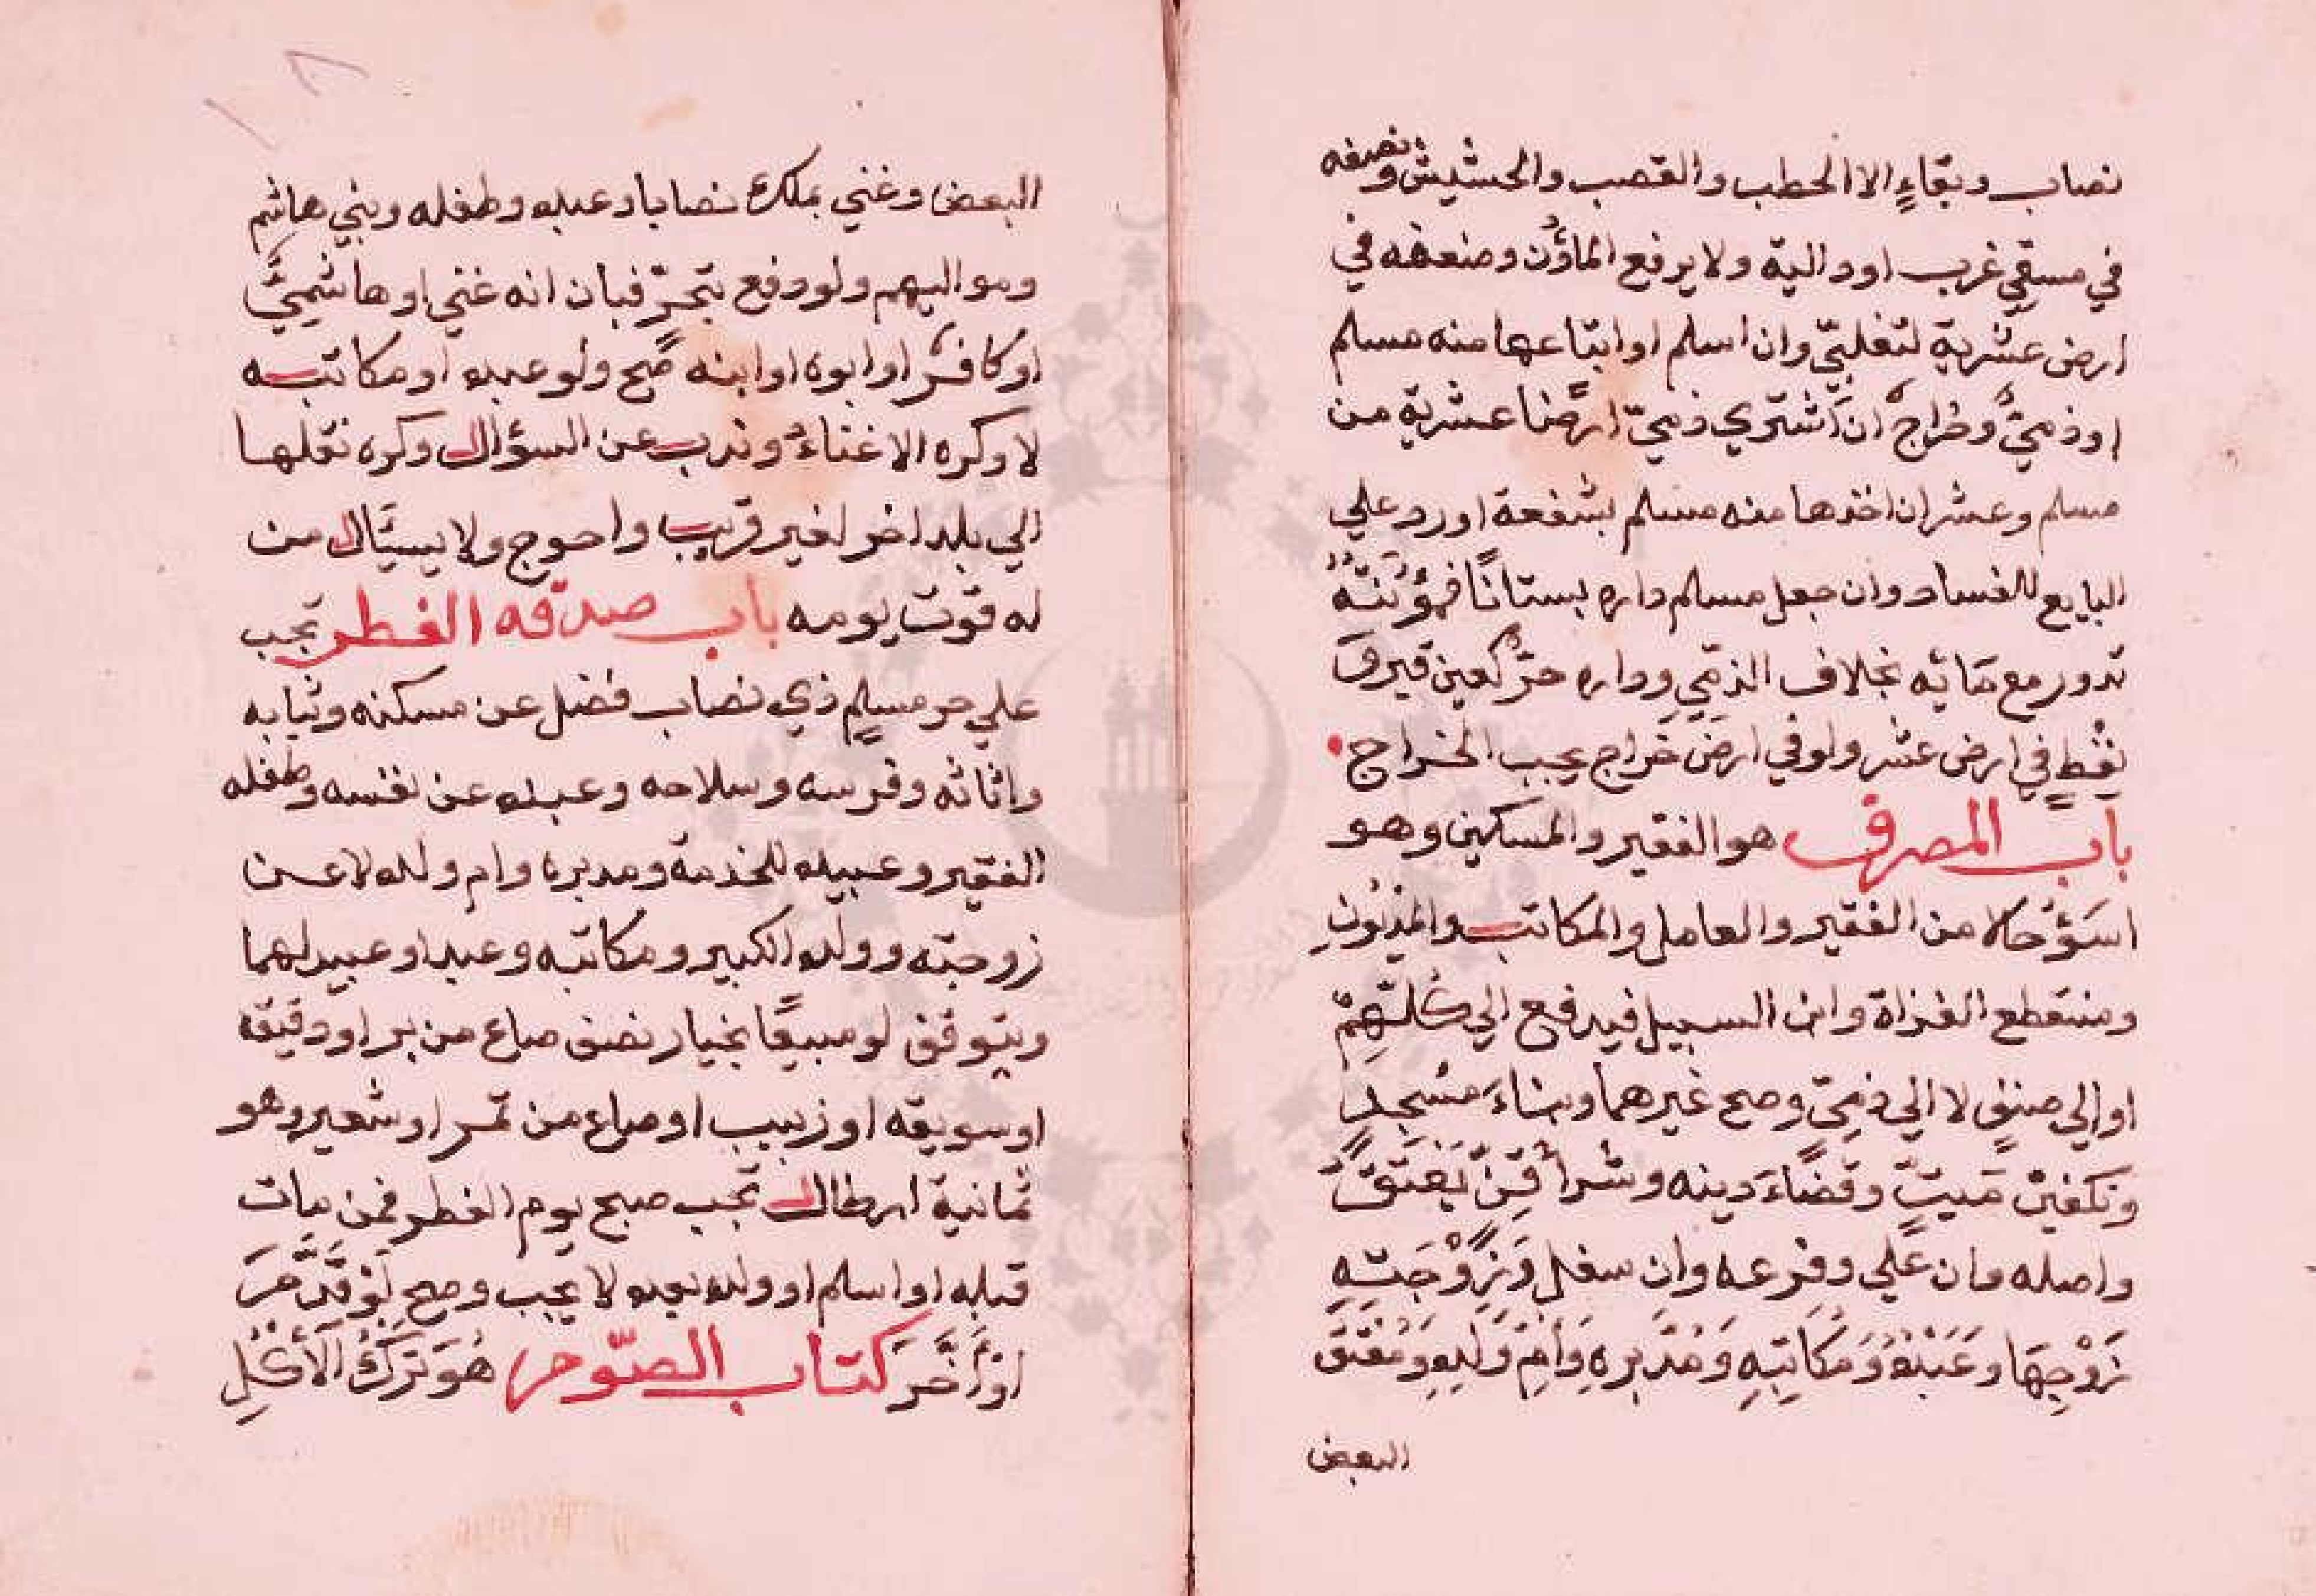 نصاب وبقاءٍ الا الحطب والقصب والحشيش ونصفه
في مسقي غرب او دالية ولا يرفع المؤن وضعفه في
ارض عشرية لتغلبيّ وان اسلم او ابتاعها منه مسلم
او ذميٌّ وخراج ان اشتري ذميّ ارضًا عشرية من
مسلم وعشر ان اخذها منه مسلم بشفعة او رد علي
البايع للفساد وان جعل مسلم داره بستانًا فمؤنته
تدور مع مائه بخلاف الذمّي وداره حرٌّ كعين قير و
نفطٍ في ارض عشر ولو في ارض خراج يجب الخراج
باب المصرف هو الفقير والمسكين وهو
اسوؤ حالا من الفقير والعامل والمكاتب والمديون
ومنقطع الغزاة وابن السبيل فيدفع الي كلّهِمْ
او الي صنفٍ لا الي ذميّ وصح غيرها وبناءَ مسجدٍ
وتكفين ميتٍ وقضاءَ دينه وشرأ قنّ يعتق
واصله وان علي وفرعه وان سفل وَزَوْجَتِهِ
زَوْجِهَا وعَبْدِهِ وَمُكَاتَبِهِ وَمُدَبَّرِهِ وَأُمِّ وَلَدِهِ وَمُعْتَقَ
البعض
البعض وغني بملك نصابا وعبده وطفله وبني هاشم
ومواليهم ولو دفع بتحرّ فبان انه غني او هاشميّ
او كافر او ابوه او ابنه صح ولو عبده او مكاتبه
لا وكره الاغناء وندب عن السؤال وكره نقلها
الي بلد اخر لغير قريب واحوج ولا يسئال من
له قوت يومه باب صدقه الفطر تجب
علي حر مسلمٍ ذي نصاب فضل عن مسكنه وثيابه
واثاثه وفرسه وسلاحه وعبيده عن نفسه وطفله
الفقير وعبيده للخدمة ومدبره وام ولده لا عن
زوجته وولده الكبير ومكاتبه وعبد او عبيد لهما
ويتوقف لو مبيعًا بخيار نصف صاع من بر او دقيقه
او سويقه او زبيب او صاع من تمر او شعير وهو
ثمانية ارطال تجب صبح يوم الفطر فمن مات
قبله او اسلم او ولد بعده لا يجب وصح لَوْ قَدَّمَ
اوْ أَخَّرَ كتاب الصّوم هُوَ تَرَكُ الأَكْلِ